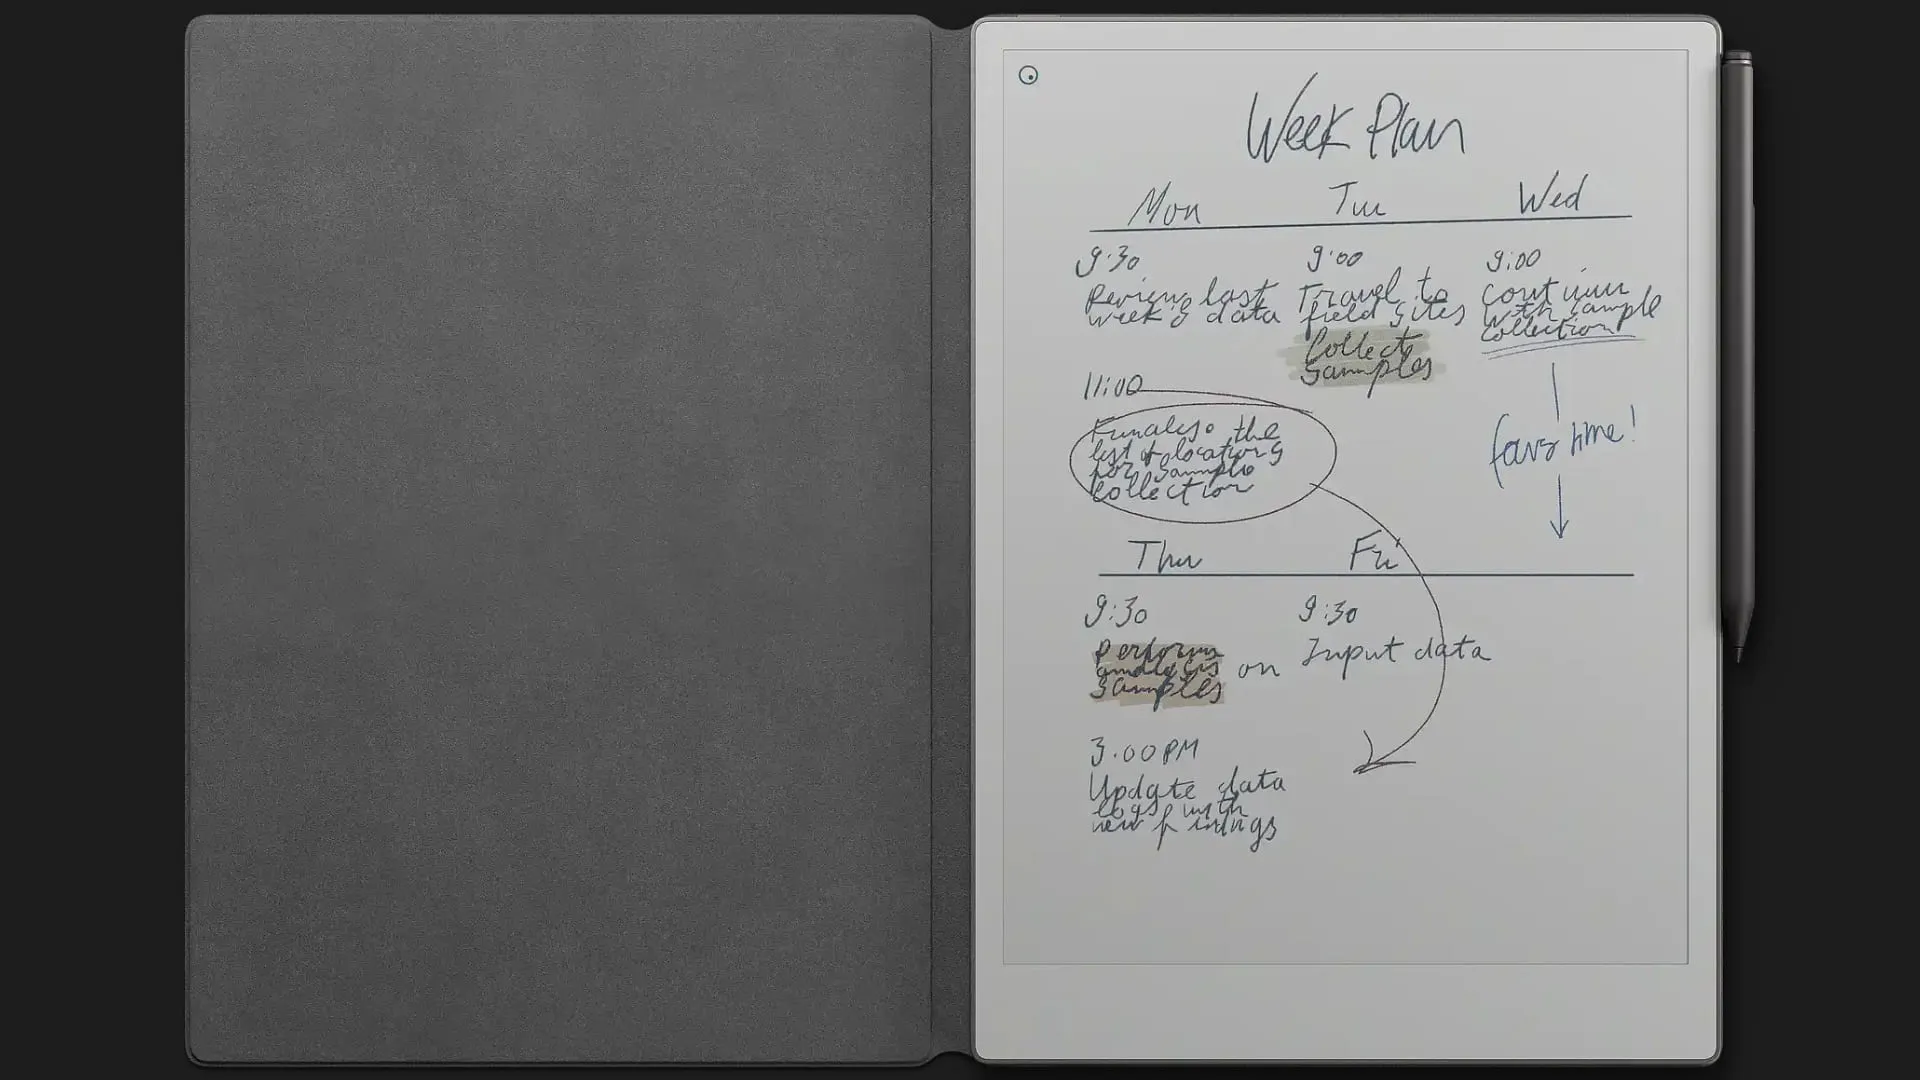 Week Plan
Mon
Tue
Wed
9:30
Review last
week's data
11:00
Finalise the
list of locations
for sample
collection
9:00
Travel to
field sites
Collect
samples
9:00
Continue
with sample
collection
time!
Thu
Fri
9:30
Perform
analysis on
samples
3.00 PM
Update data
logs with
new findings
9:30
Input data